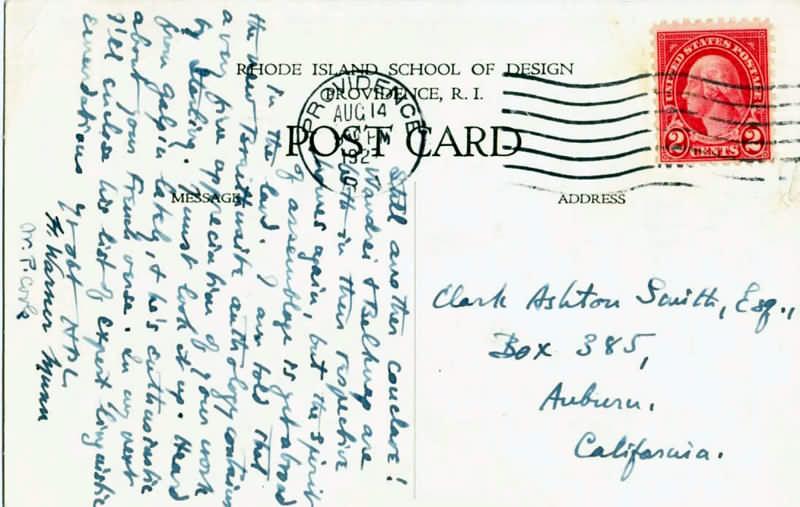 RHODE ISLAND SCHOOL OF DESIGN
PROVIDENCE, R. I.
POST CARD
PROVIDENCE
AUG 14
UNITED STATES POSTAGE
2 CENTS 2
MESSAGE
ADDRESS
Still another conclave!
Wandrei & Belknap are
both in their respective
homes again, but the spirit
of assemblage is yet abroad
in the land. I am told that
the new Termithunite anthology contains
a very fine appreciation of your work
by Sterling. I must look it up. Heard
from Galpin lately, & he's enthusiastic
about your French verse. In my next
I'll enclose his list of expert linguistic
emendations
Yr obt HPL
H. Warner Munn
W. P. Cook
Clark Ashton Smith, Esq.,
Box 385,
Auburn,
California.